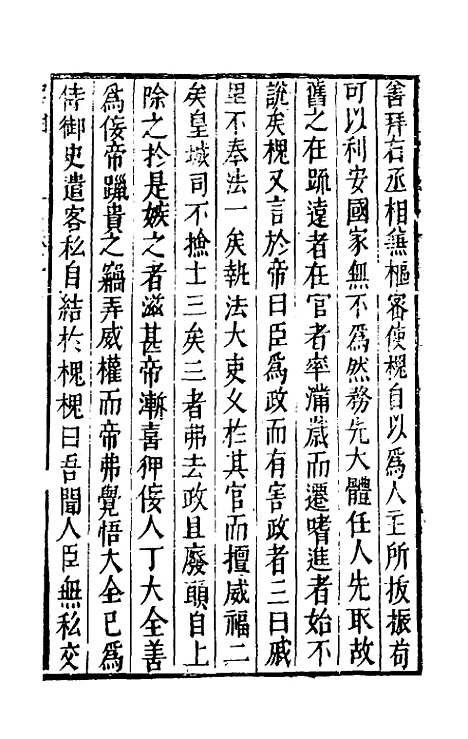 善拜右丞相兼樞密使槐自以爲人主所拔振苟
可以利安國家無不爲然務先大體任人先取故
舊之在踈遠者在官者率滿歲而遷嗜進者始不
說矣槐又言於帝曰臣爲政而有害政者三曰戚
里不奉法一矣執法大吏乆於其官而擅威福二
矣皇城司不撿士三矣三者弗去政且廢願自上
除之於是嫉之者滋甚帝漸喜狎佞人丁大全善
爲佞帝躐貴之竊弄威權而帝弗覺悟大全已爲
侍御史遣客私自結於槐槐曰吾聞人臣無私交